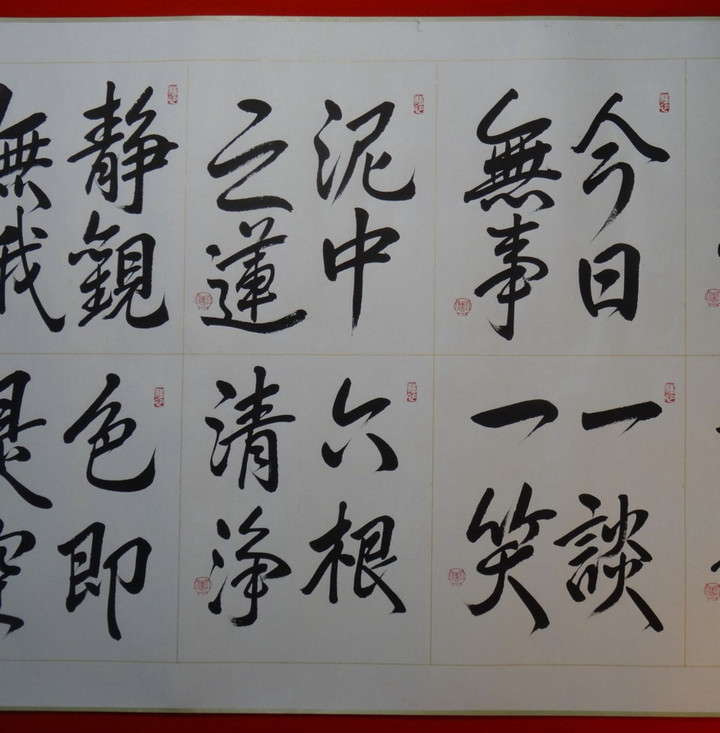 今日
無事
一談
一笑
泥中
之蓮
六根
清浄
静觀
無我
色即
是空